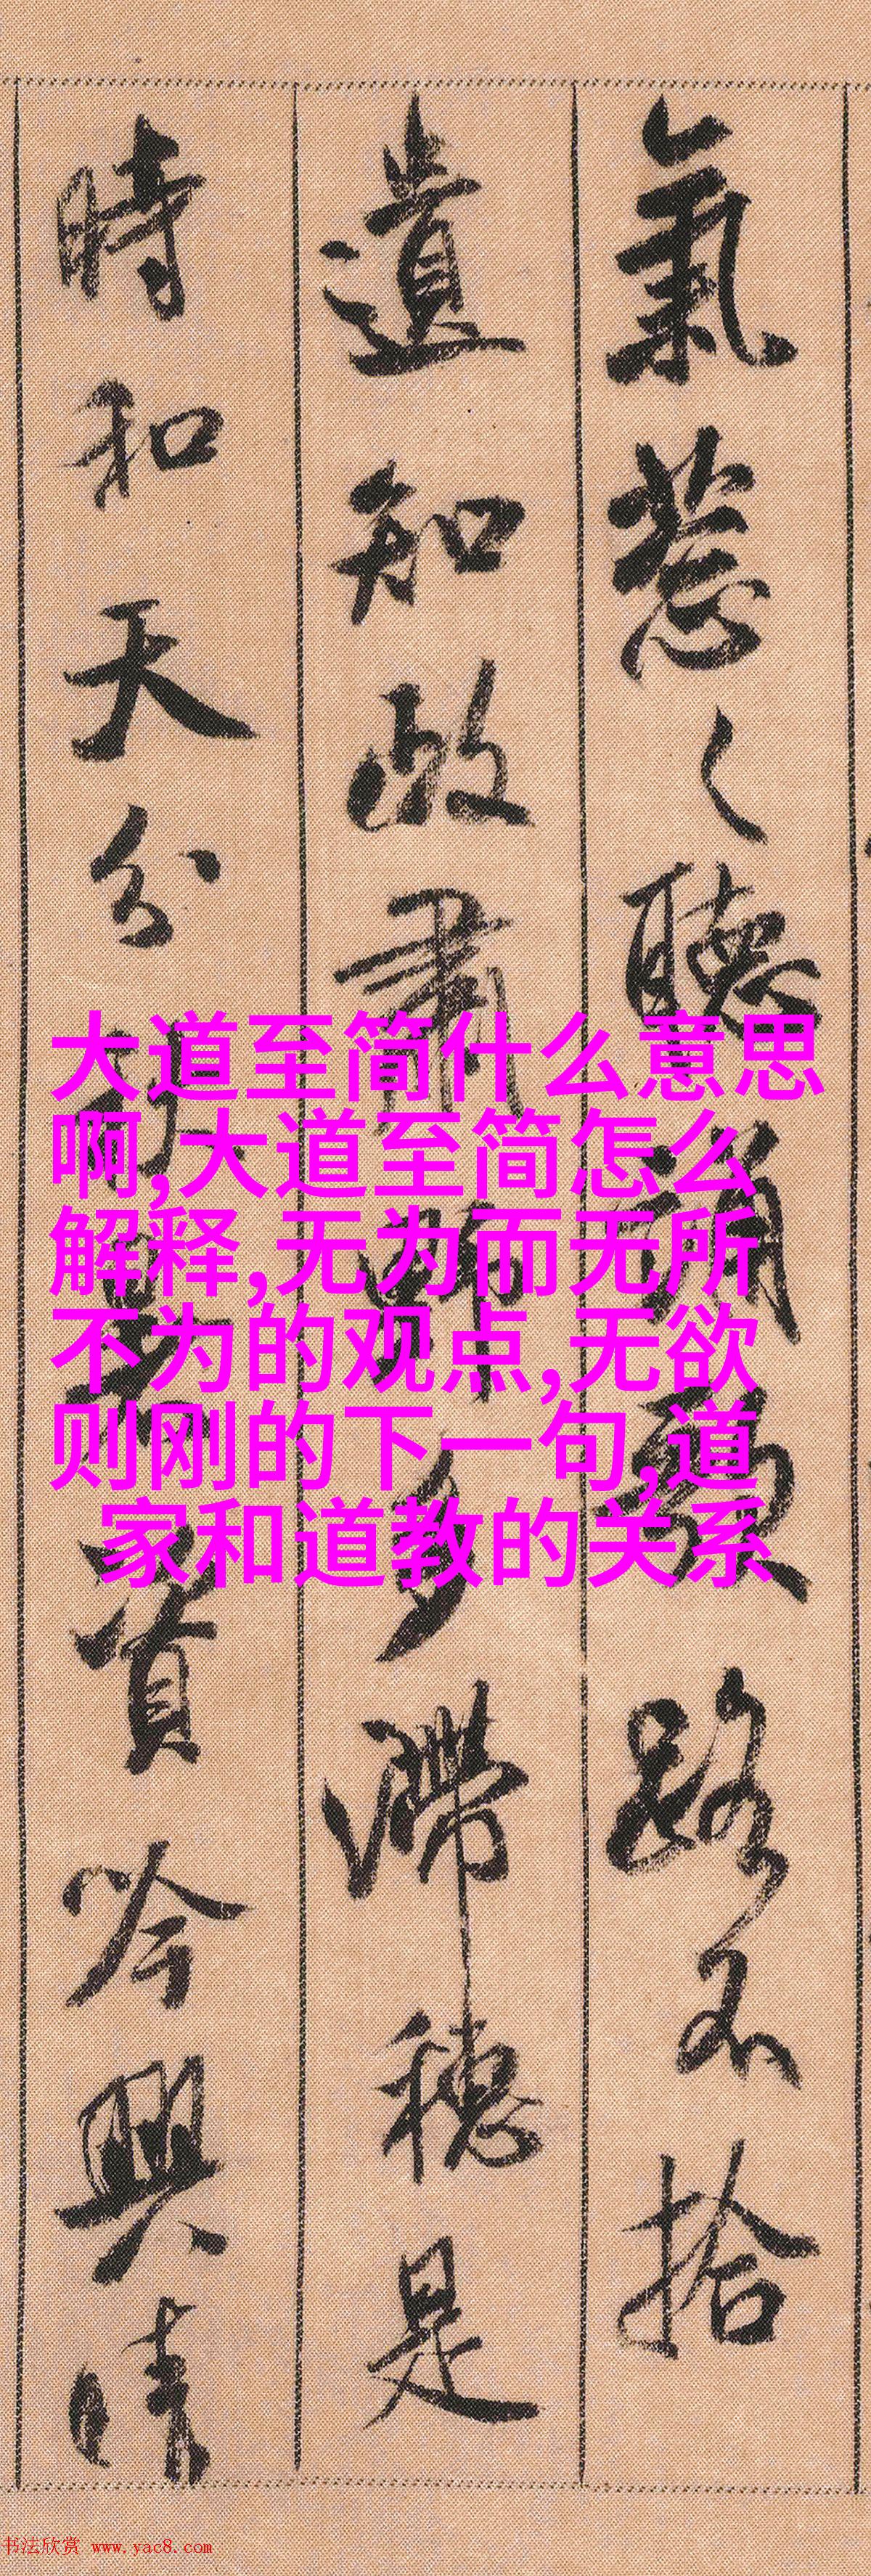 氣葱々聽誦歌路不拾
遺知政肅野多滯穗是
時和天分秋暑資吟興晴
大道至简什么意思
啊,大道至简怎么
解释,无为而无所
不为的观点,无欲
则刚的下一句,道
家和道教的关系
书法欣赏 www.yac8.com